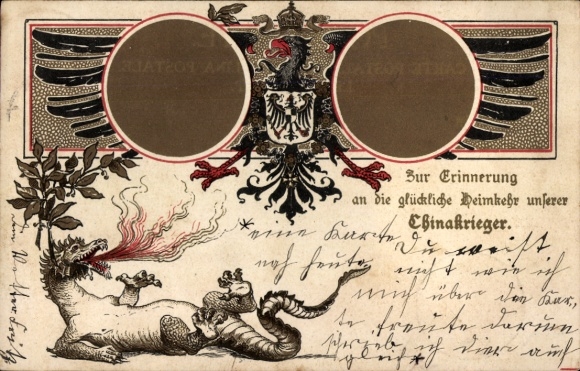 Zur Erinnerung
an die glückliche Heimkehr unserer
Chinakrieger.
*eine Karte Du weißt
noch heute nicht wie ich
mich über die Kar,
te freute darum
schreib ich dier auch
gleich*